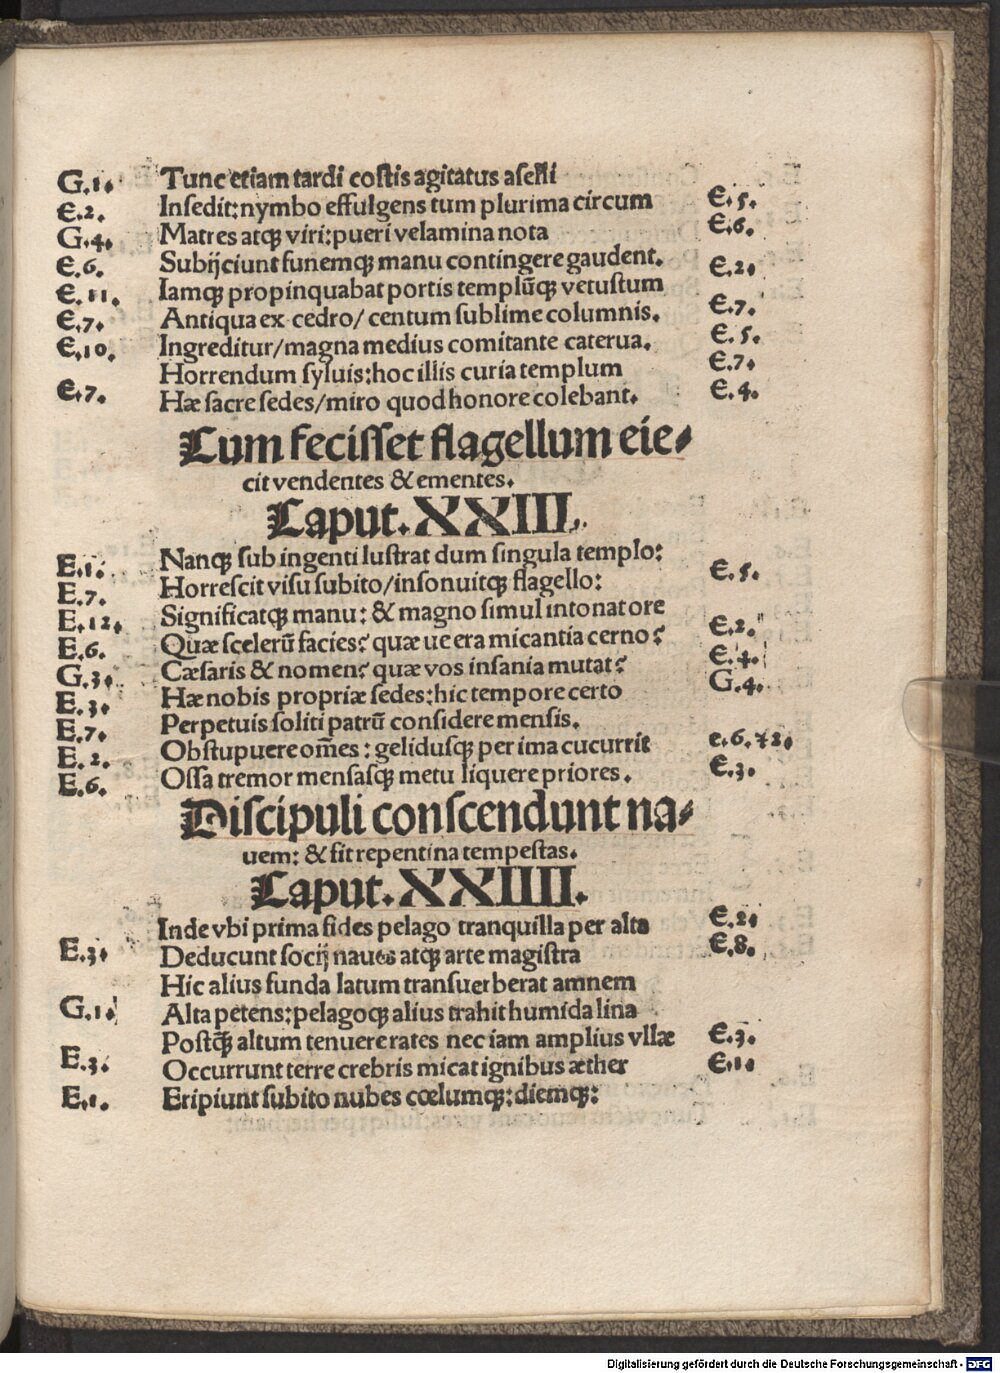 G.1. Tunc etiam tardi costis agitatus aselli
E.2. Insedit:nymbo effulgens tum plurima circum E.5.
G.4. Matres atqꝫ viri:pueri velamina nota E.6.
E.6. Subijciunt funemqꝫ manu contingere gaudent. E.2.
E.11. Iamqꝫ propinquabat portis templũqꝫ vetustum
E.7. Antiqua ex cedro/ centum sublime columnis. E.7.
E.10. Ingreditur/magna medius comitante caterua. E.5.
Horrendum syluis:hoc illis curia templum E.7.
E.7. Hæ sacre sedes/miro quod honore colebant. E.4.
Cum fecisset flagellum eie⸗
cit vendentes & ementes.
Caput.XXIII.
E.1. Nanqꝫ sub ingenti lustrat dum singula templo:
E.7. Horrescit visu subito/insonuitqꝫ flagello: E.5.
E.12. Significatqꝫ manu: & magno simul intonat ore
E.6. Quæ scelerũ facies? quæ ue era micantia cerno? E.2.
G.3. Cæsaris & nomen? quæ vos insania mutat? E.4.
E.3. Hæ nobis propriæ sedes:hic tempore certo G.4.
E.7. Perpetuis soliti patrũ considere mensis.
E.2. Obstupuere om̃es : gelidusqꝫ per ima cucurrit e.6.⁊2.
E.6. Ossa tremor mensasqꝫ metu liquere priores. E.3.
Discipuli conscendunt na⸗
uem: & fit repentina tempestas.
Caput.XXIIII.
Inde vbi prima fides pelago tranquilla per alta E.2.
E.3. Deducunt socij naues atqꝫ arte magistra E.8.
Hic alius funda latum transuerberat amnem
G.1. Alta petens:pelagoqꝫ alius trahit humida lina
Postq̃ altum tenuere rates nec iam amplius vllæ E.3.
E.3. Occurrunt terre crebris micat ignibus æther E.1.
E.1. Eripiunt subito nubes cœlumqꝫ:diemqꝫ:
Digitalisierung gefördert durch die Deutsche Forschungsgemeinschaft - DFG